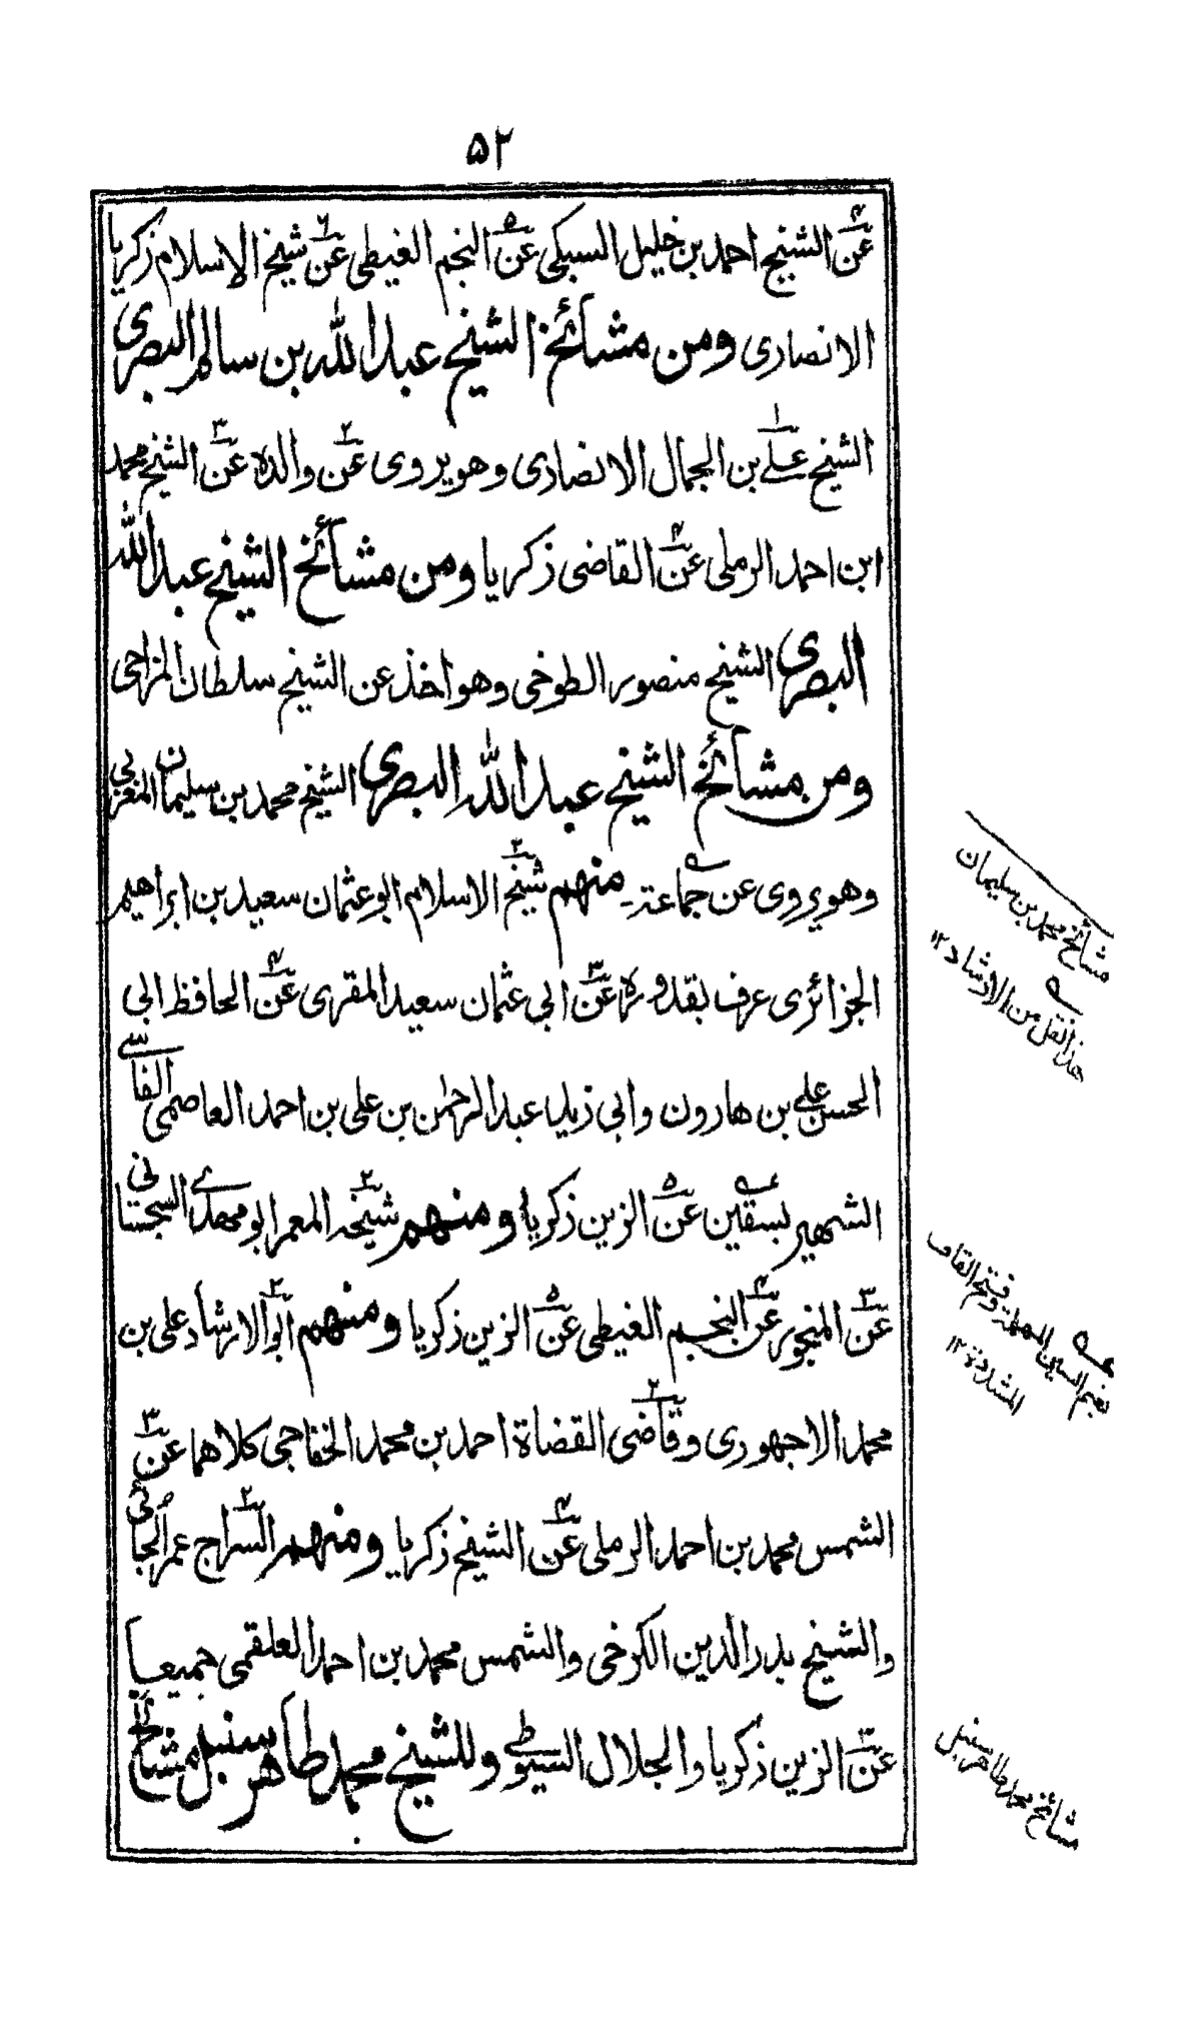 ۵۲
عن الشيخ احمد بن خليل السبكى عن النجم الغيطى عن شيخ الاسلام زكريا
الانصارى ومن مشائخ الشيخ عبد الله بن سالم البصرى
الشيخ على بن الجمال الانصارى وهو يروى عن والده عن الشيخ محمد
ابن احمد الرملى عن القاضى زكريا ومن مشائخ الشيخ عبد الله
البصرى الشيخ منصور الطوخى وهو اخذ عن الشيخ سلطان المزاحى
ومن مشائخ الشيخ عبد الله البصرى الشيخ محمد بن سليمان المغربى
وهو يروى عن جماعة منهم شيخ الاسلام ابو عثمان سعيد بن ابراهيم
الجزائرى عرف بقدوره عن ابى عثمان سعيد المقرى عن الحافظ ابى
الحسن على بن هارون وابى زيد عبد الرحمٰن بن على بن احمد العاصمى الفاسى
الشهير بسقين عن الزين زكريا ومنهم شيخه المعمر ابو مهدى السجستانى
عن المنجور عن النجم الغيطى عن الزين زكريا ومنهم ابو الارشاد على بن
محمد الاجهورى وقاضى القضاة احمد بن محمد الخفاجى كلاهما عن
الشمس محمد بن احمد الرملى عن الشيخ زكريا ومنهم السراج عمر الجائى
والشيخ بدر الدين الكرخى والشمس محمد بن احمد العلقمى جميعا
عن الزين زكريا والجلال السيوطى وللشيخ محمد طاهر سنبل مشائخ
مشائخ محمد بن سليمان
هذا النقل من الارشاد ۱۲
بفتح السين المهملة وفتح القاف
المشددة ۱۲
مشائخ محمد طاهر سنبل